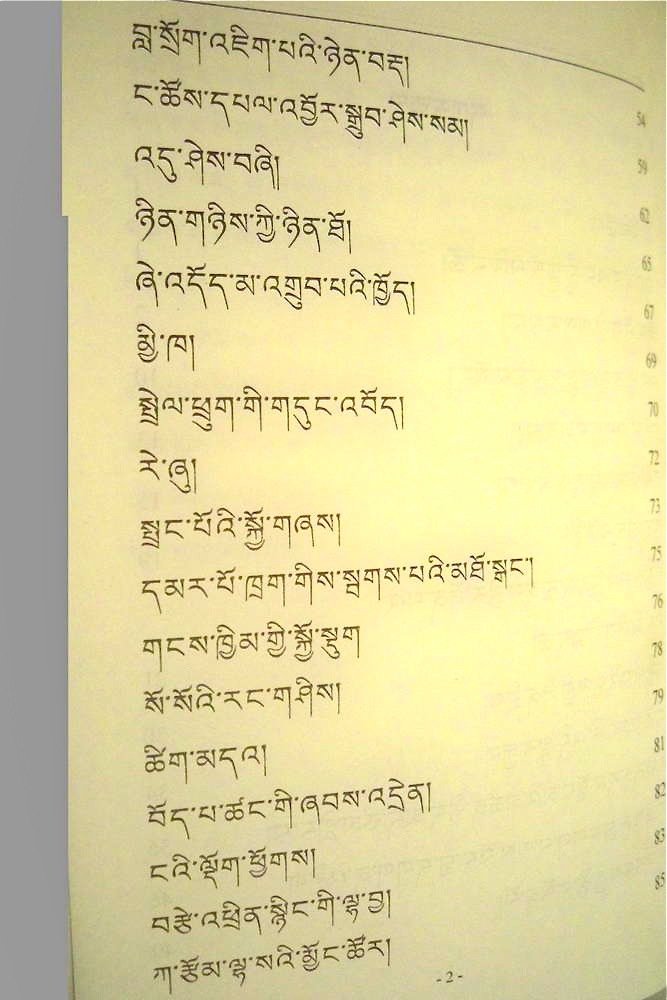 བླ་སྲོག་འཇིག་པའི་ཉེན་བརྡ།
ང་ཚོས་དཔལ་འབྱོར་སྒྲུབ་ཤེས་སམ།
54
འདུ་ཤེས་བཞི།
59
ཉིན་གཉིས་ཀྱི་ཉིན་ཐོ།
62
ཞེ་འདོད་མ་འགྲུབ་པའི་ཁྱོད།
65
67
མྱི་ཁ།
69
སྤྲེལ་ཕྲུག་གི་གདུང་འབོད།
70
རེ་ཞུ།
72
སྤྲང་པོའི་སྐྱོ་གཞས།
73
དམར་པོ་ཁྲག་གིས་སྦགས་པའི་མཐོ་སྒང་།
75
76
གངས་ཁྱིམ་གྱི་སྐྱོ་སྡུག
78
སོ་སོའི་རང་གཤིས།
79
ཚིག་མདའ།
81
བོད་པ་ཚང་གི་ཞབས་འདྲེན།
82
ངའི་ལྡོག་ཕྱོགས།
83
བརྩེ་འཕྲིན་སྙིང་གི་ལྷ་བྱ།
85
ཀ་རྩོམ་ལྷ་སའི་མྱོང་ཚོར།
-2-